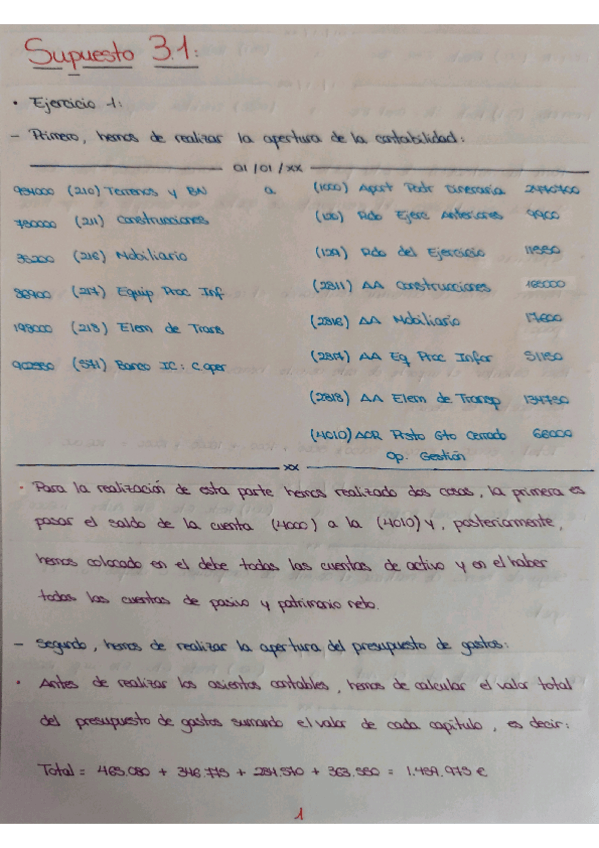 Supuesto 3.1:
• Ejercicio 1:
- Primero, hemos de realizar la apertura de la contabilidad:
01/01/XX
(210) Terrenos y BN a (1000) Aport Patr Dineraria
(211) Construcciones (120) Rdo Ejerc Anteriores 9900
(216) Mobiliario (129) Rdo del Ejercicio
(217) Equip Proc Inf (2811) AA Construcciones
(218) Elem de Trans (2816) AA Mobiliario 17600
(571) Banco IC: C. oper (2817) AA Eq Proc Infor
(2818) AA Elem de Transp
(4010) ACR Ppsto Gto Cerrado 66000
Op. Gestión
XX
• Para la realización de esta parte hemos realizado dos cosas, la primera es
pasar el saldo de la cuenta (4000) a la (4010) y, posteriormente,
hemos colocado en el debe todas las cuentas de activo y en el haber
todas las cuentas de pasivo y patrimonio neto.
- Segundo, hemos de realizar la apertura del presupuesto de gastos:
• Antes de realizar los asientos contables, hemos de calcular el valor total
del presupuesto de gastos sumando el valor de cada capítulo, es decir:
Total =
1